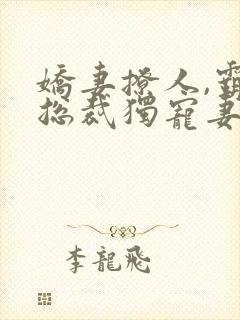 嬌妻撩人,霸
總裁獨寵妻
李龍飛